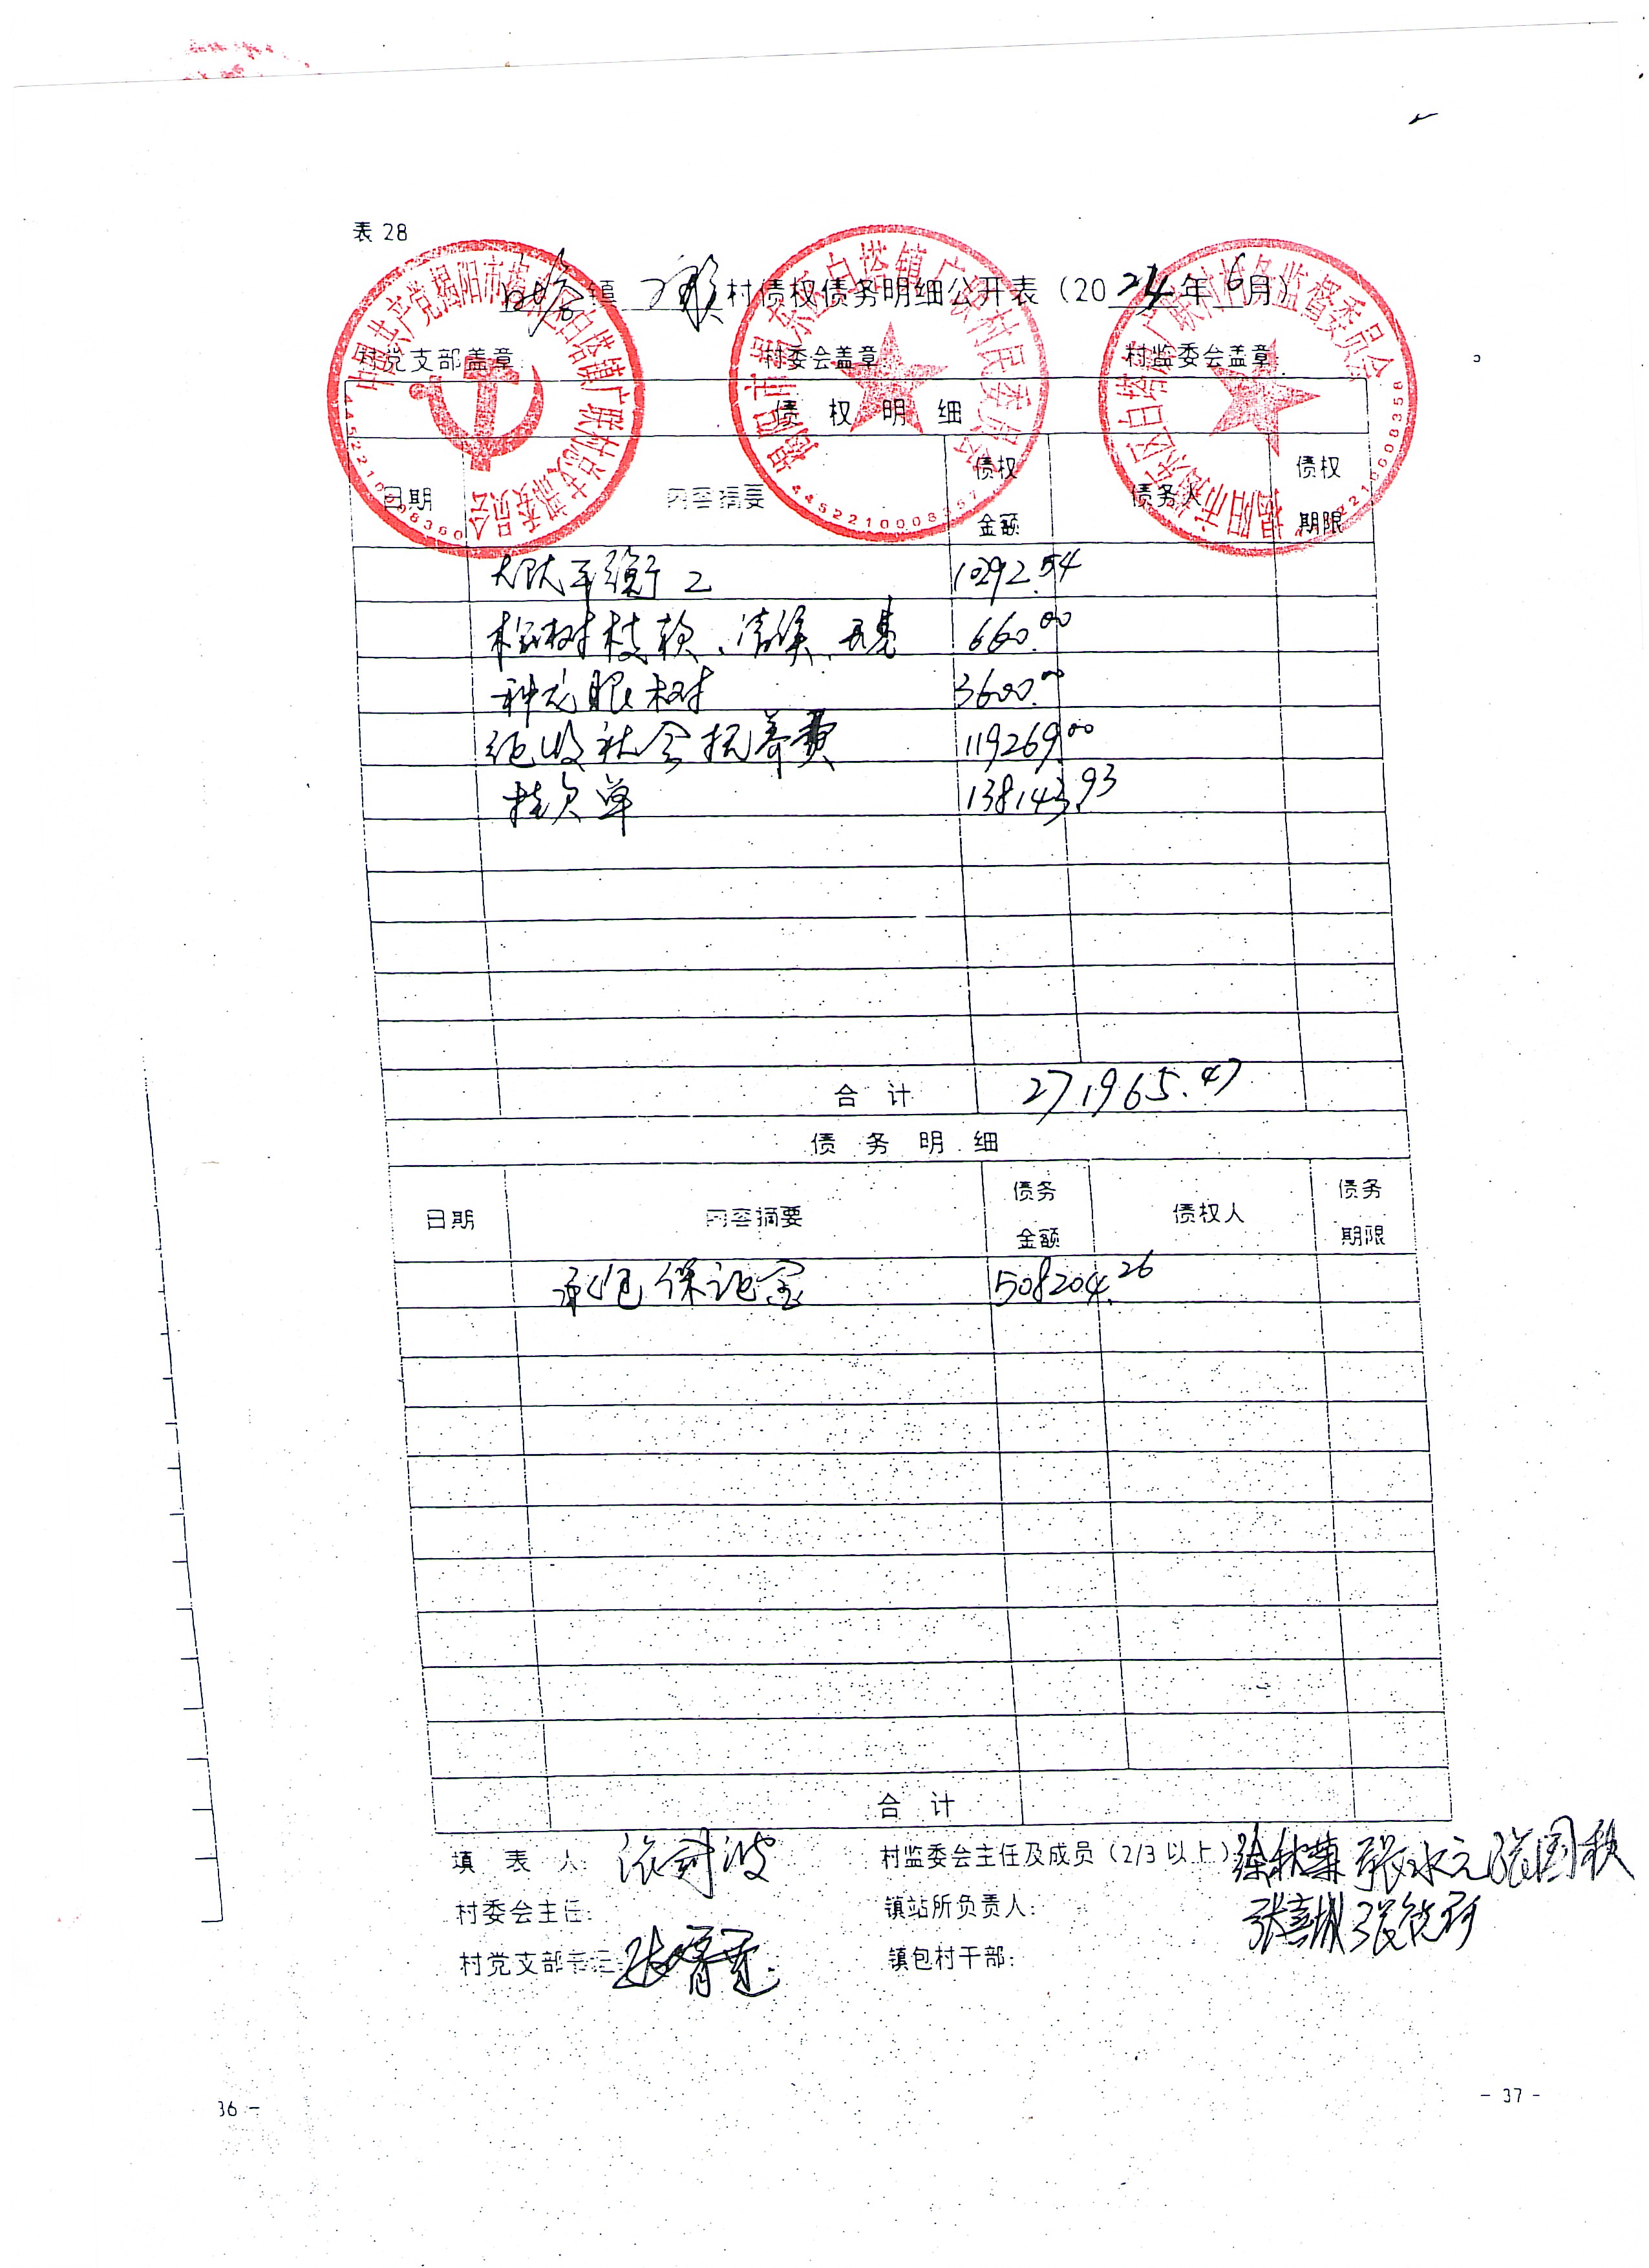 表 28
白塔镇 广联村债权债务明细公开表（2024年6月）
村党支部盖章: 村委会盖章 村监委会盖章:
中国共产党揭阳市揭东区白塔镇广联村总支部委员会
揭阳市揭东区白塔镇广联村民委员会
揭阳市揭东区白塔镇广联村村务监督委员会
债权明细
日期 内容摘要 债权金额 债务人 债权期限
大队平衡 2 10292.54
660.00
种龙眼树 3600.00
社会抚养费 119269.00
挂欠单 138143.93
合计 271965.47
债务明细
日期 内容摘要 债务金额 债权人 债务期限
承包保证金 508204.26
合计
填表人: 村监委会主任及成员（2/3 以上）
村委会主任: 镇站所负责人:
村党支部书记: 镇包村干部:
36 -
- 37 -